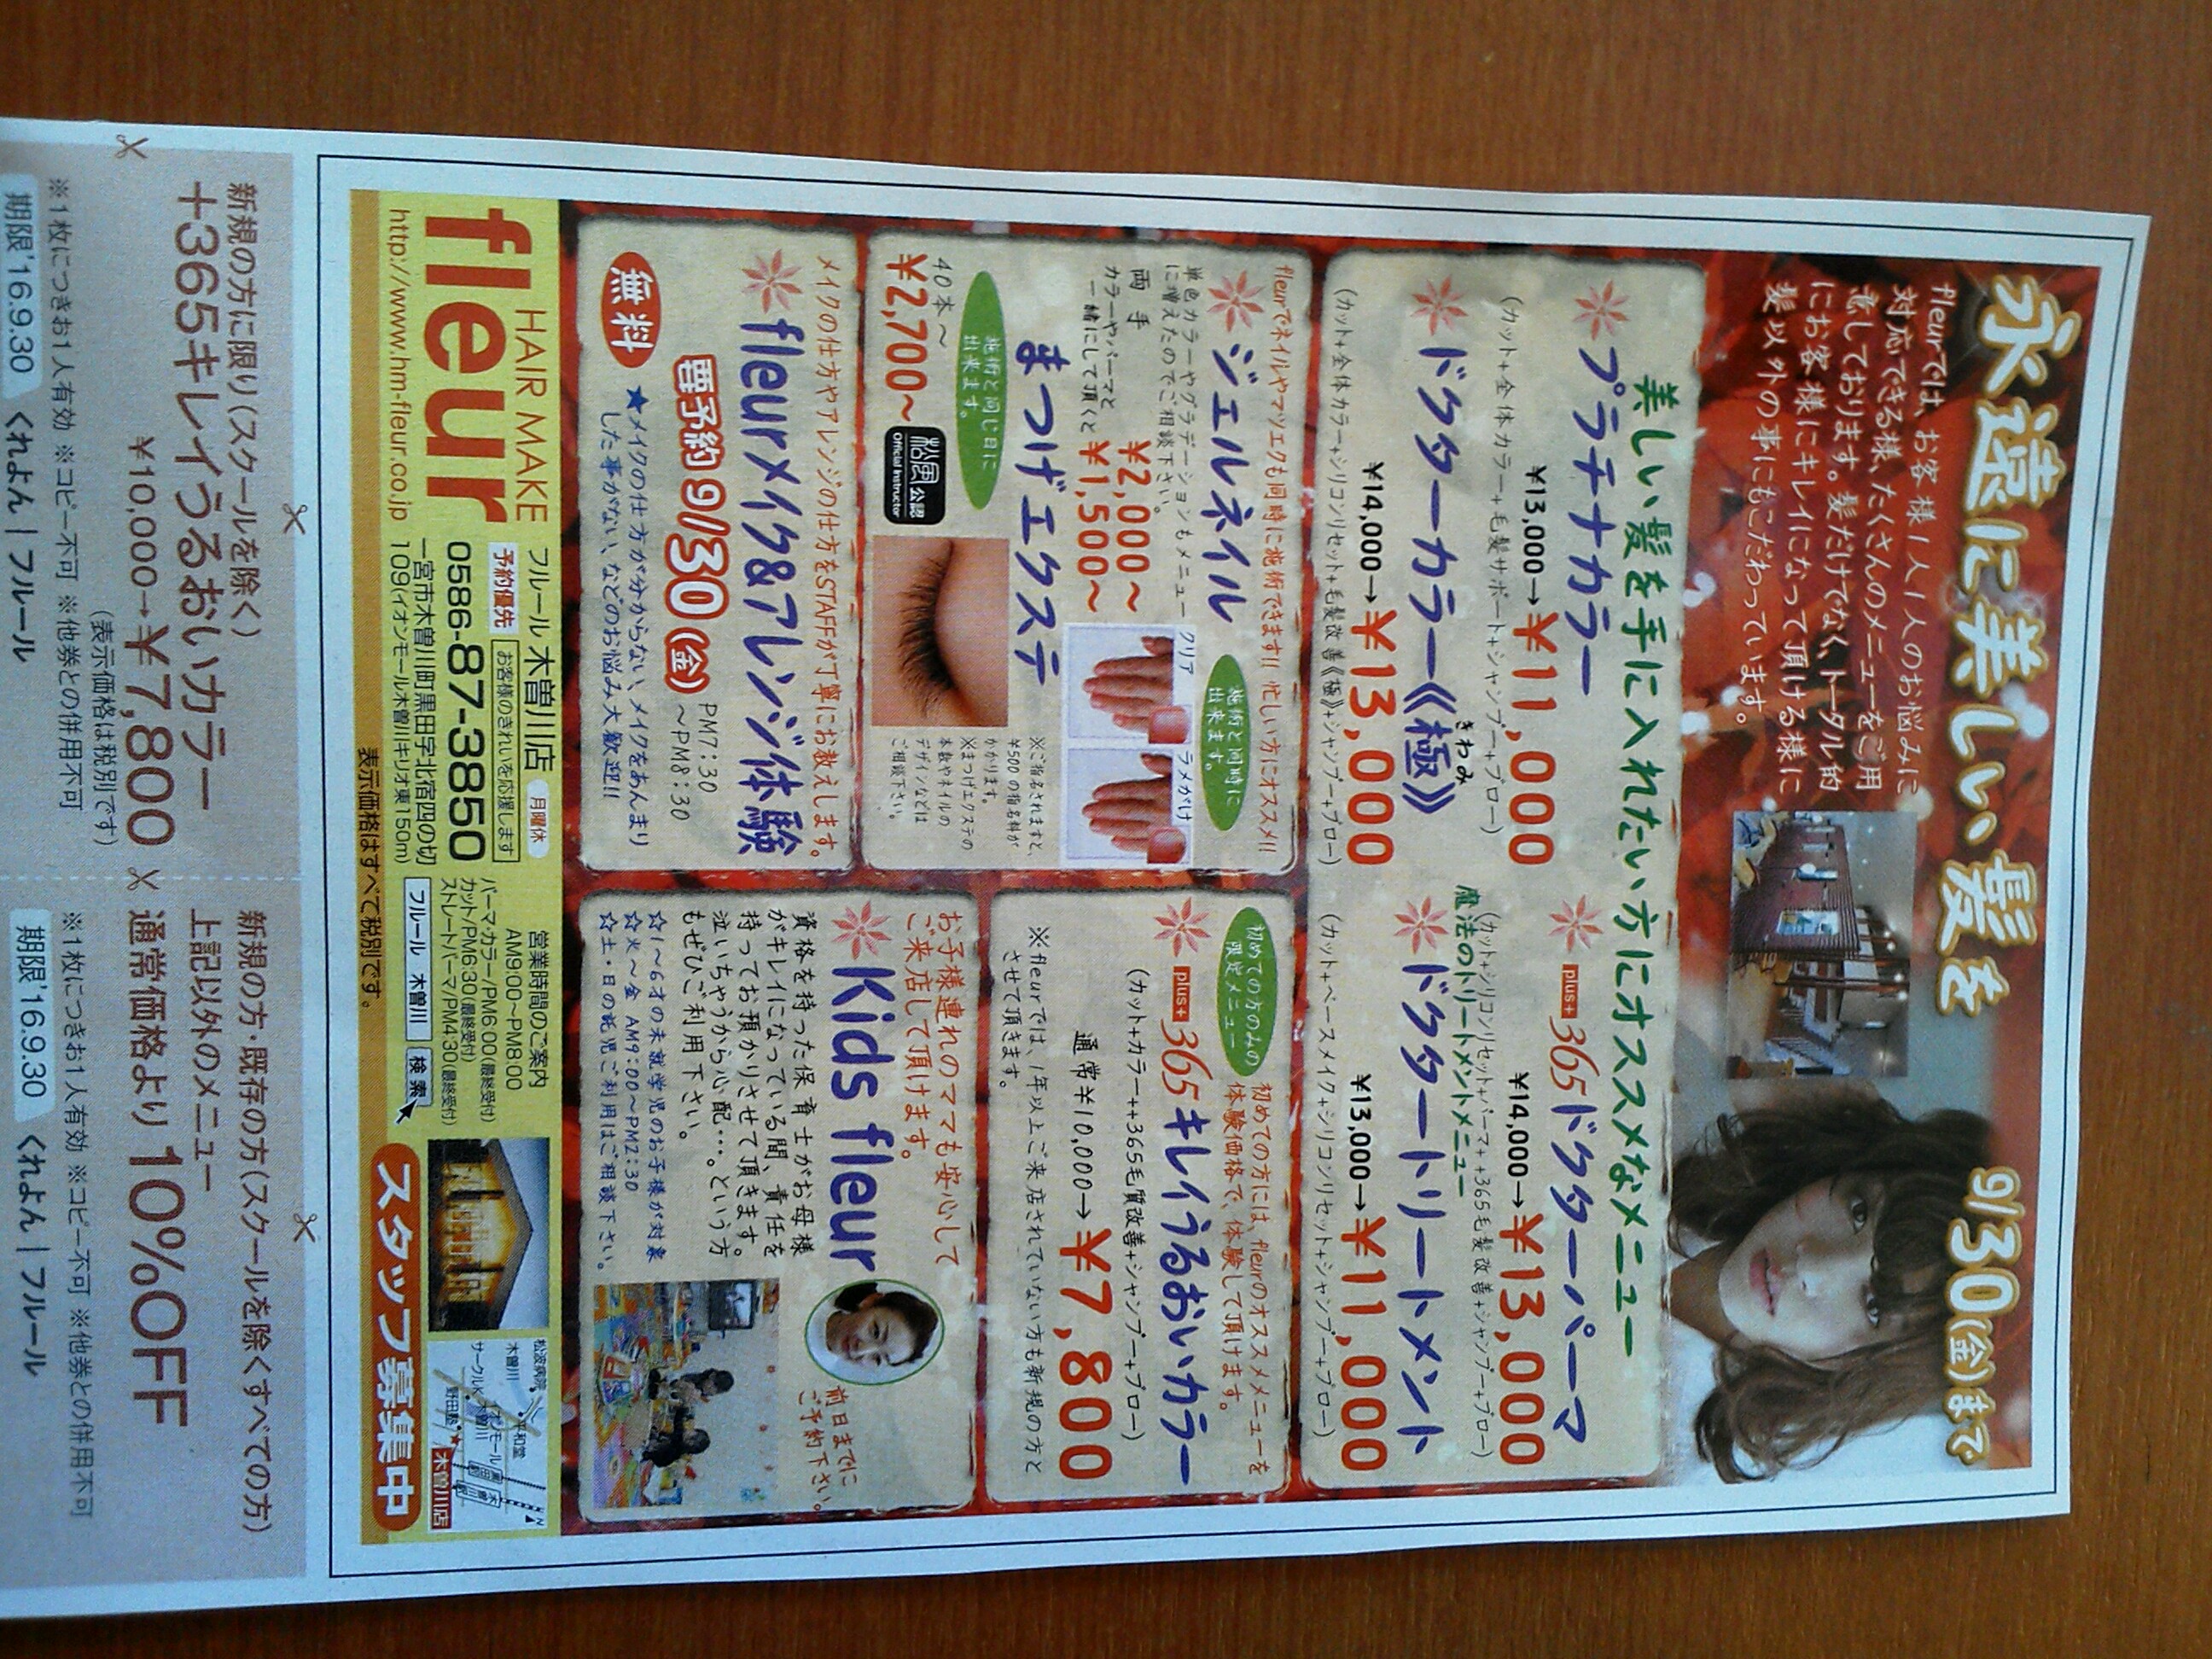 永遠に美しい髪を
9/30(金)まで
fleurでは、お客様1人1人のお悩みに
対応できる様、たくさんのメニューをご用
意しております。髪だけでなく、トータル的
にお客様にキレイになって頂ける様に
髪以外の事にもこだわっています。
美しい髪を手に入れたい方にオススメなメニュー
プラチナカラー
¥13,000→¥11,000
(カット+全体カラー+毛髪サポート+シャンプー+ブロー)
ドクターカラー《極》
きわみ
¥14,000→¥13,000
(カット+全体カラー+シリコンリセット+毛髪改善《極》+シャンプー+ブロー)
plus+ 365ドクターパーマ
¥14,000→¥13,000
(カット+シリコンリセット+パーマ++365毛髪改善+シャンプー+ブロー)
魔法のトリートメントメニュー
ドクタートリートメント
¥13,000→¥11,000
(カット+ベースメイク+シリコンリセット+シャンプー+ブロー)
fleurでネイルやマツエクも同時に施術できます!! 忙しい方にオススメ!!
ジェルネイル
施術と同時に
出来ます。
単色カラーやグラデーションもメニュー
に増えたのでご相談下さい。
両手 ¥2,000～
カラーやパーマと
一緒にして頂くと ¥1,500～
クリア
ラメがけ
まつげエクステ
施術と同じ日に
出来ます。
40本～
¥2,700～
松風公認
Official Instructor
※ご指名されますと、
¥500の指名料が
かかります。
※まつげエクステの
本数やネイルの
デザインなどは
ご相談下さい。
初めての方のみの
限定メニュー
初めての方には、fleurのオススメメニューを
体験価格で、体験して頂けます。
plus+ 365キレイうるおいカラー
(カット+カラー++365毛質改善+シャンプー+ブロー)
通常¥10,000→¥7,800
※fleurでは、1年以上ご来店されていない方も新規の方と
させて頂きます。
メイクの仕方やアレンジの仕方をSTAFFが丁寧にお教えします。
fleurメイク&アレンジ体験
要予約 9/30(金) PM7:30
～PM8:30
無料
★メイクの仕方が分からない、メイクをあんまり
した事がない、などのお悩み大歓迎!!
お子様連れのママも安心して
ご来店して頂けます。
Kids fleur
資格を持った保育士がお母様
がキレイになっている間、責任を
持ってお預かりさせて頂きます。
泣いちゃうから心配…。という方
もぜひご利用下さい。
☆1～6才の未就学児のお子様が対象
☆火～金 AM9:00～PM2:30
☆土・日の託児ご利用はご相談下さい。
前日までに
ご予約下さい。
HAIR MAKE
fleur
http://www.hm-fleur.co.jp
フルール 木曽川店 月曜休
予約優先 お客様のきれいを応援します
0586-87-3850
一宮市木曽川町黒田字北宿四の切
109(イオンモール木曽川キリオ東150m)
表示価格はすべて税別です。
営業時間のご案内
AM9:00～PM8:00
パーマ・カラー/PM6:00(最終受付)
カット/PM6:30(最終受付)
ストレートパーマ/PM4:30(最終受付)
フルール 木曽川 検索
スタッフ募集中
松波病院
木曽川
平和堂
サークルK
イオンモール
木曽川
野田塾
木曽川店
N
新規の方に限り(スクールを除く)
+365キレイうるおいカラー
¥10,000→¥7,800
(表示価格は税別です)
※1枚につきお1人有効 ※コピー不可 ※他券との併用不可
期限'16.9.30 くれよん | フルール
新規の方・既存の方(スクールを除くすべての方)
上記以外のメニュー
通常価格より10%OFF
※1枚につきお1人有効 ※コピー不可 ※他券との併用不可
期限'16.9.30 くれよん | フルール